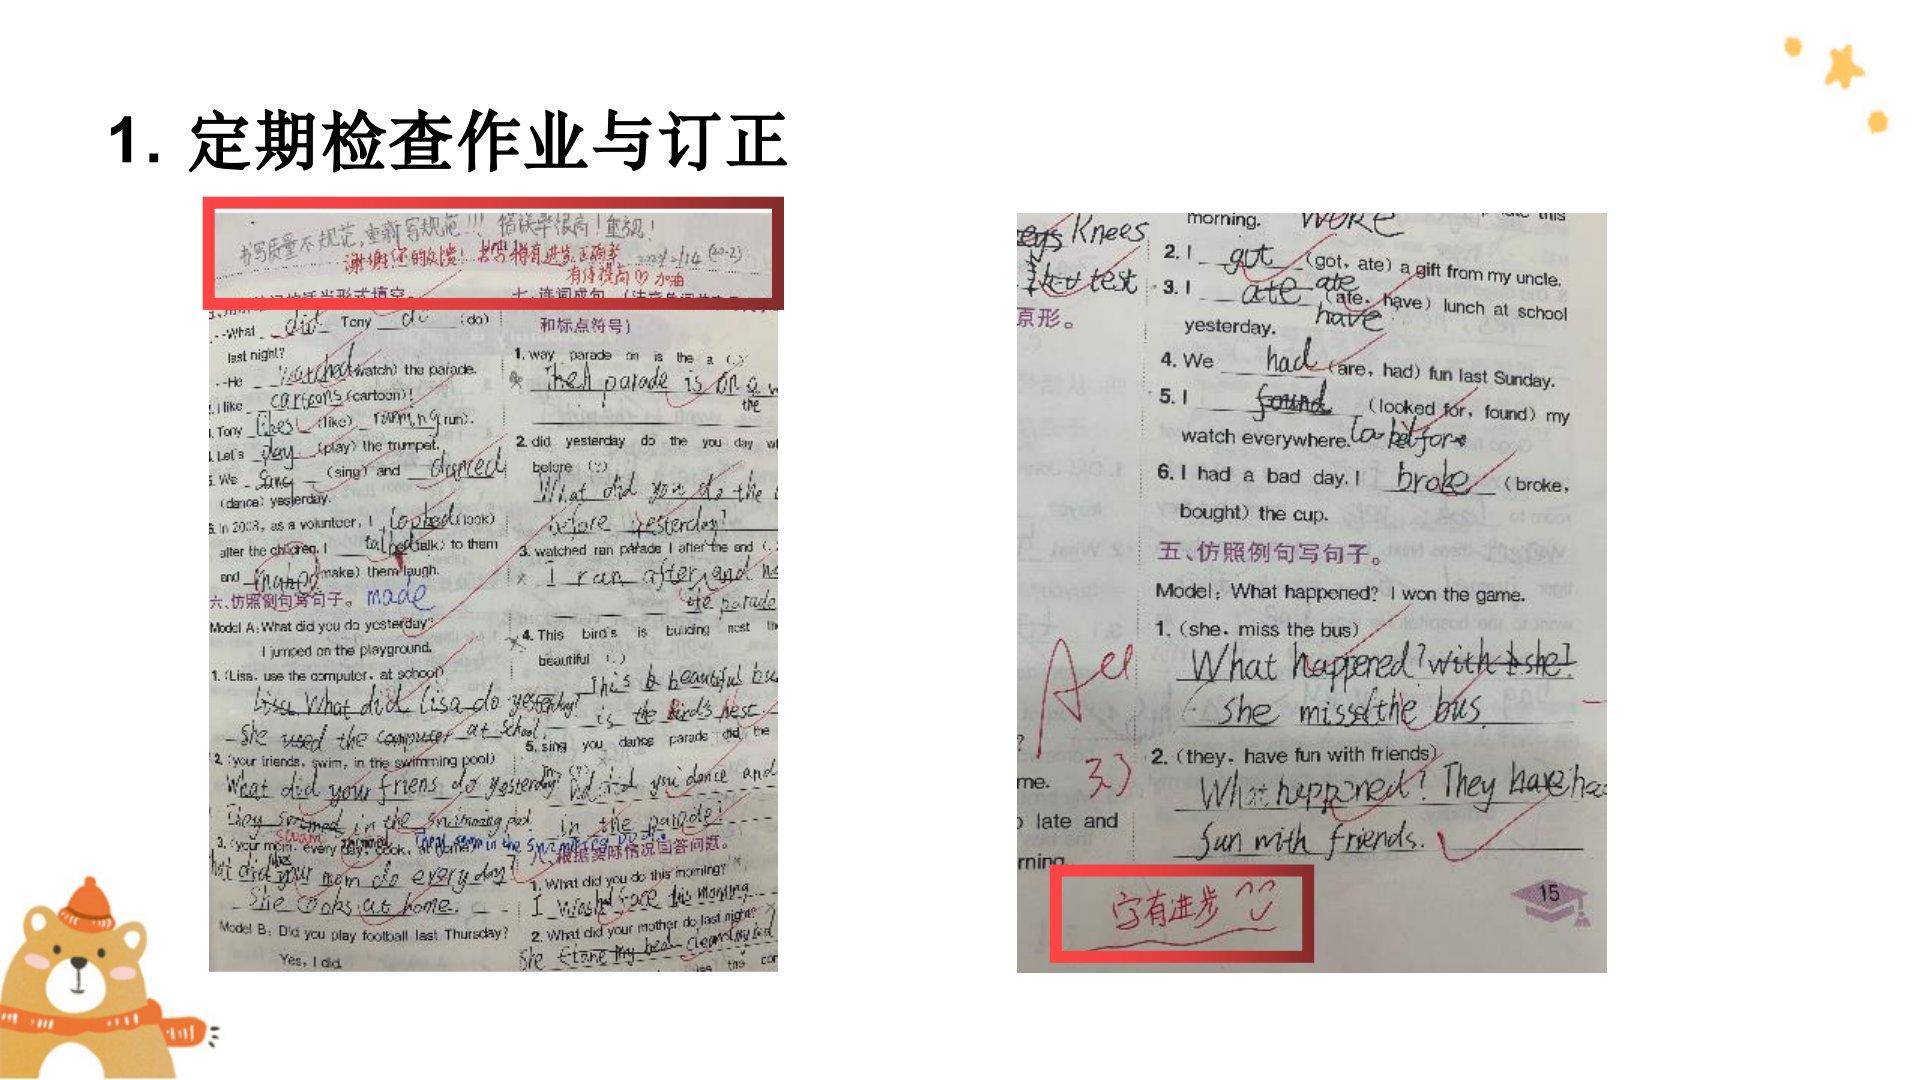 1. 定期检查作业与订正
书写质量不规范,重新写规范!!! 错误率很高!重视!
谢谢您的反馈!书写稍有进步,正确率
有待提高 加油
五、用所给词的适当形式填空。
--What did Tony do (do)
last night?
--He watched (watch) the parade.
I like cartoons (cartoon)!
Tony likes (like) running (run).
Let's play (play) the trumpet.
We sang (sing) and danced
(dance) yesterday.
In 2008, as a volunteer, I looked (look)
after the children. I talked (talk) to them
and (make) them laugh.
made
六、仿照例句写句子。
Model A: What did you do yesterday?
I jumped on the playground.
1. (Lisa, use the computer, at school)
Lisa What did Lisa do yesterday?
She used the computer at school.
2. (your friends, swim, in the swimming pool)
What did your friens do yesterday?
They in the swimming pool.
swam
3. (your mom, every day, cook, at home)
did your mom do every day?
She cooks at home.
Model B: Did you play football last Thursday?
Yes, I did.
七、连词成句。
和标点符号)
1. way parade on is the a (.)
The parade is on a
the
2. did yesterday do the you day
before (?)
What did you do the
before yesterday?
3. watched ran parade I after the and (.)
I ran after and
the parade
4. This bird's is building nest
beautiful (.)
This is beautiful
is the bird's nest.
5. sing you dance parade did the
in (?)
Did you dance and
in the parade?
八、根据实际情况回答问题。
1. What did you do this morning?
I wash face this morning
2. What did your mother do last night?
She clean my bed
Knees
test
原形。
morning. woke
2. I got (got, ate) a gift from my uncle.
3. I ate (ate, have) lunch at school
ate
have
yesterday.
4. We had (are, had) fun last Sunday.
5. I found (looked for, found) my
watch everywhere.
6. I had a bad day. I broke (broke,
bought) the cup.
五、仿照例句写句子。
Model: What happened? I won the game.
1. (she, miss the bus)
What happened? with she?
She missd the bus.
2. (they, have fun with friends)
What happened? They have
fun with friends.
me.
late and
rning.
15
字有进步